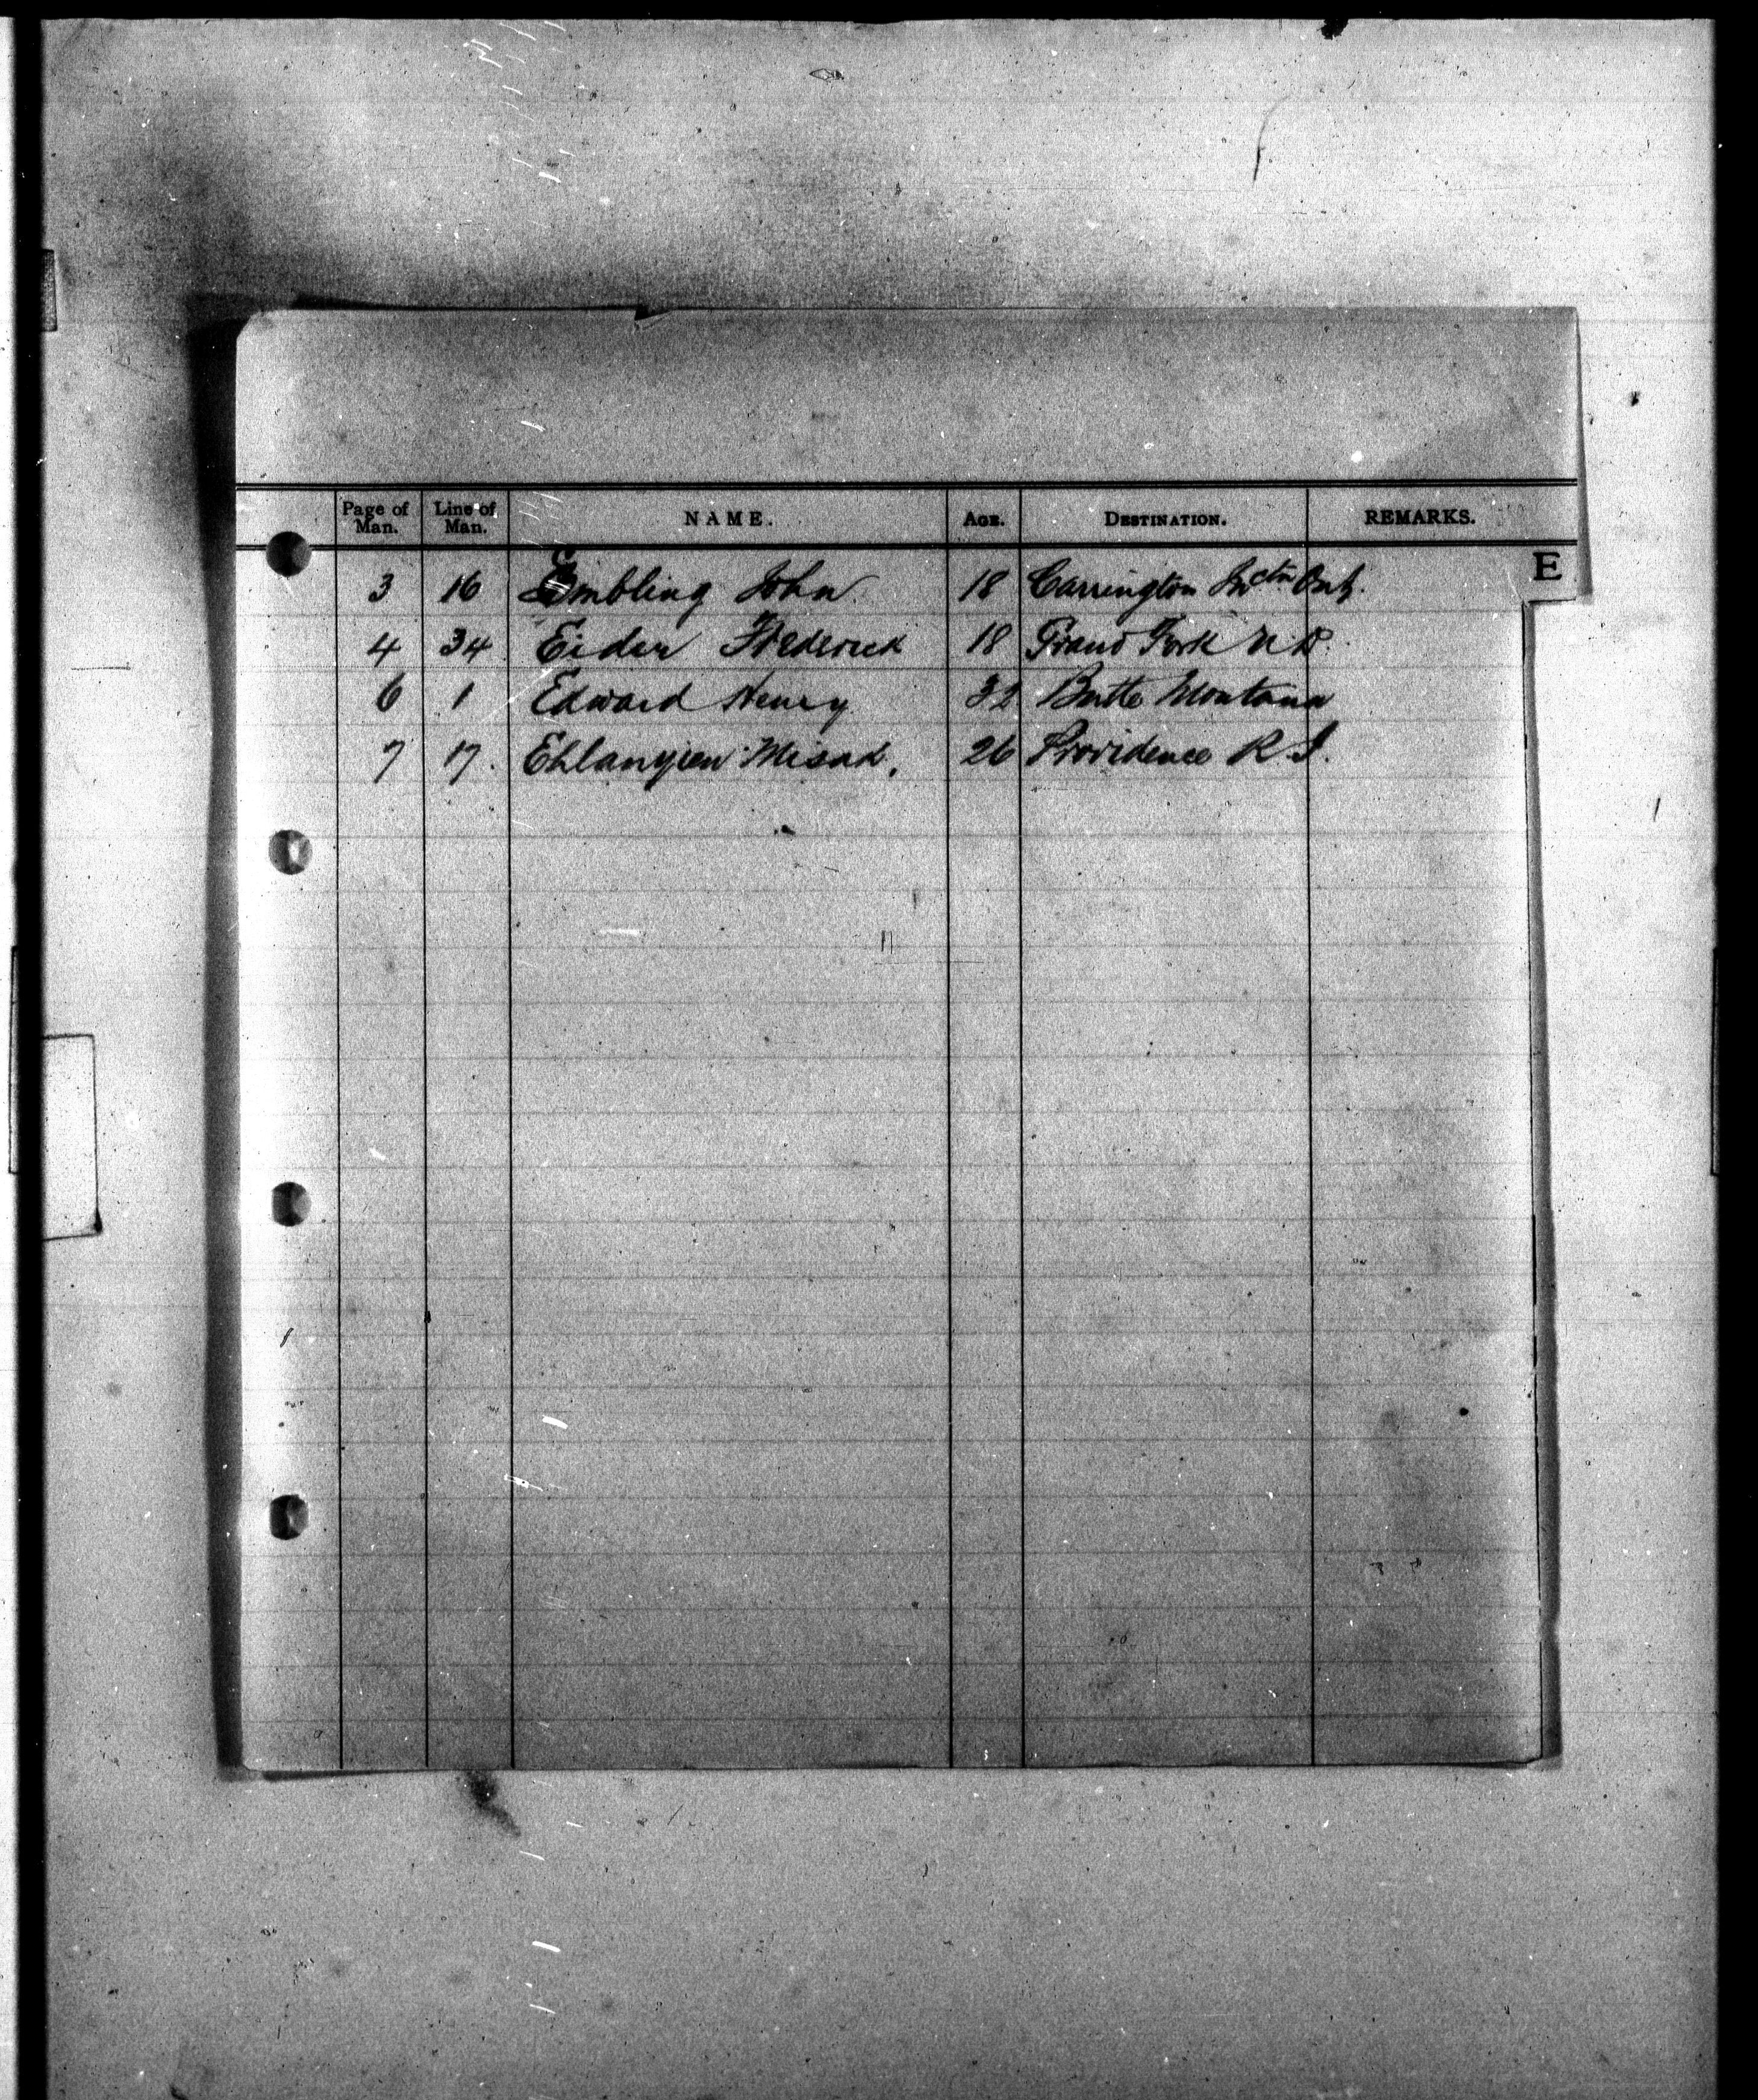 Page of Man. Line of Man. NAME. AGE. DESTINATION. REMARKS.
E
3 16 Embling John 18 Carrington Jnctn Ont.
4 34 Eider Frederick 18 Grand Fork N.D.
6 1 Edward Henry 32 Butte Montana
7 17. Misak. 26 Providence R.I.